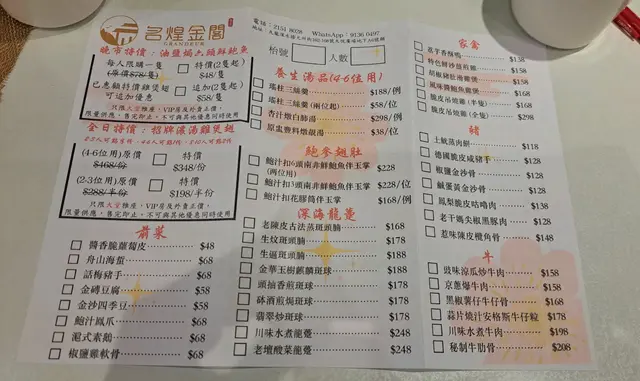 名煌金閣
GRANDEUR
晚市特價：油鹽焗六頭鮮鮑魚
每人限購一隻
(原價$78/隻)
特價(2隻起)
$48/隻
已惠顧特價雞煲翅
可追加優惠
追加(2隻起)
$58/隻
只限大堂推座，VIP房及外賣正價，
限量供應，售完即止，不可與其他優惠同時使用
全日特價：招牌濃湯雞煲翅
(4-6位用)原價
$468/份
特價
$348/份
(2-3位用)原價
$288/半份
特價
$198/半份
只限大堂推座，VIP房及外賣正價，
限量供應，售完即止，不可與其他優惠同時使用
前菜
醬香脆蘿蔔皮 $48
舟山海蜇 $68
話梅豬手 $68
金磚豆腐 $58
金沙四季豆 $58
鮑汁鳳爪 $68
滬式素鵝 $68
椒鹽雞軟骨 $68
電話：2151 8028 WhatsApp：9136 0497
枱號
人數
養生湯品(4-6位用)
瑤柱三絲羹 $188/例
瑤柱三絲羹(兩位起) $58/位
杏汁燉白肺湯 $298/例
原盅賽螄燉靚湯 $38/位
鮑參翅肚
鮑汁扣6頭南非鮮鮑魚伴玉掌 $228
(兩位用)
鮑汁扣3頭南非鮮鮑魚伴玉掌 $228/位
鮑汁扣花膠筒伴玉掌 $168/例
深海龍躉
老陳皮古法蒸斑頭腩 $168
生炆斑頭腩 $178
生逼斑頭腩 $188
金華玉樹麒麟斑球 $188
頭抽香煎斑球 $178
砵酒煎焗斑球 $178
翡翠炒斑球 $178
川味水煮龍躉 $248
老壇酸菜龍躉 $248
家禽
薏芋香酥鴨 $138
特色鮮沙薑煎雞 $158
胡椒豬肚湯雞煲 $158
風味醬鮑魚雞煲 $168
脆皮吊燒雞(半隻) $168
脆皮吊燒雞(全隻) $298
豬
土魷蒸肉餅 $118
德國脆皮咸豬手 $128
椒鹽金沙骨 $128
鹹蛋黃金沙骨 $128
鳳梨脆皮咕嚕肉 $138
老干媽尖椒黑豚肉 $128
惹味陳皮欖角骨 $148
牛
豉味涼瓜炒牛肉 $158
京蔥爆牛肉 $158
黑椒薯仔牛仔骨 $168
蒜片燒汁安格斯牛仔粒 $178
川味水煮牛肉 $198
秘制牛肋骨 $208